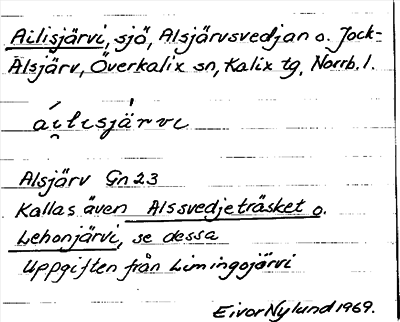 Ailisjärvi, sjö, Alsjärvsvedjan o. Jock-
Alsjärv, Överkalix sn, Kalix tg, Norrb. l.
ái̯lisjä́rvi
Alsjärv Gn 23
Kallas även Alssvedjeträsket o.
Lehonjärvi, se dessa
Uppgiften från Limingojärvi
Eivor Nylund 1969.